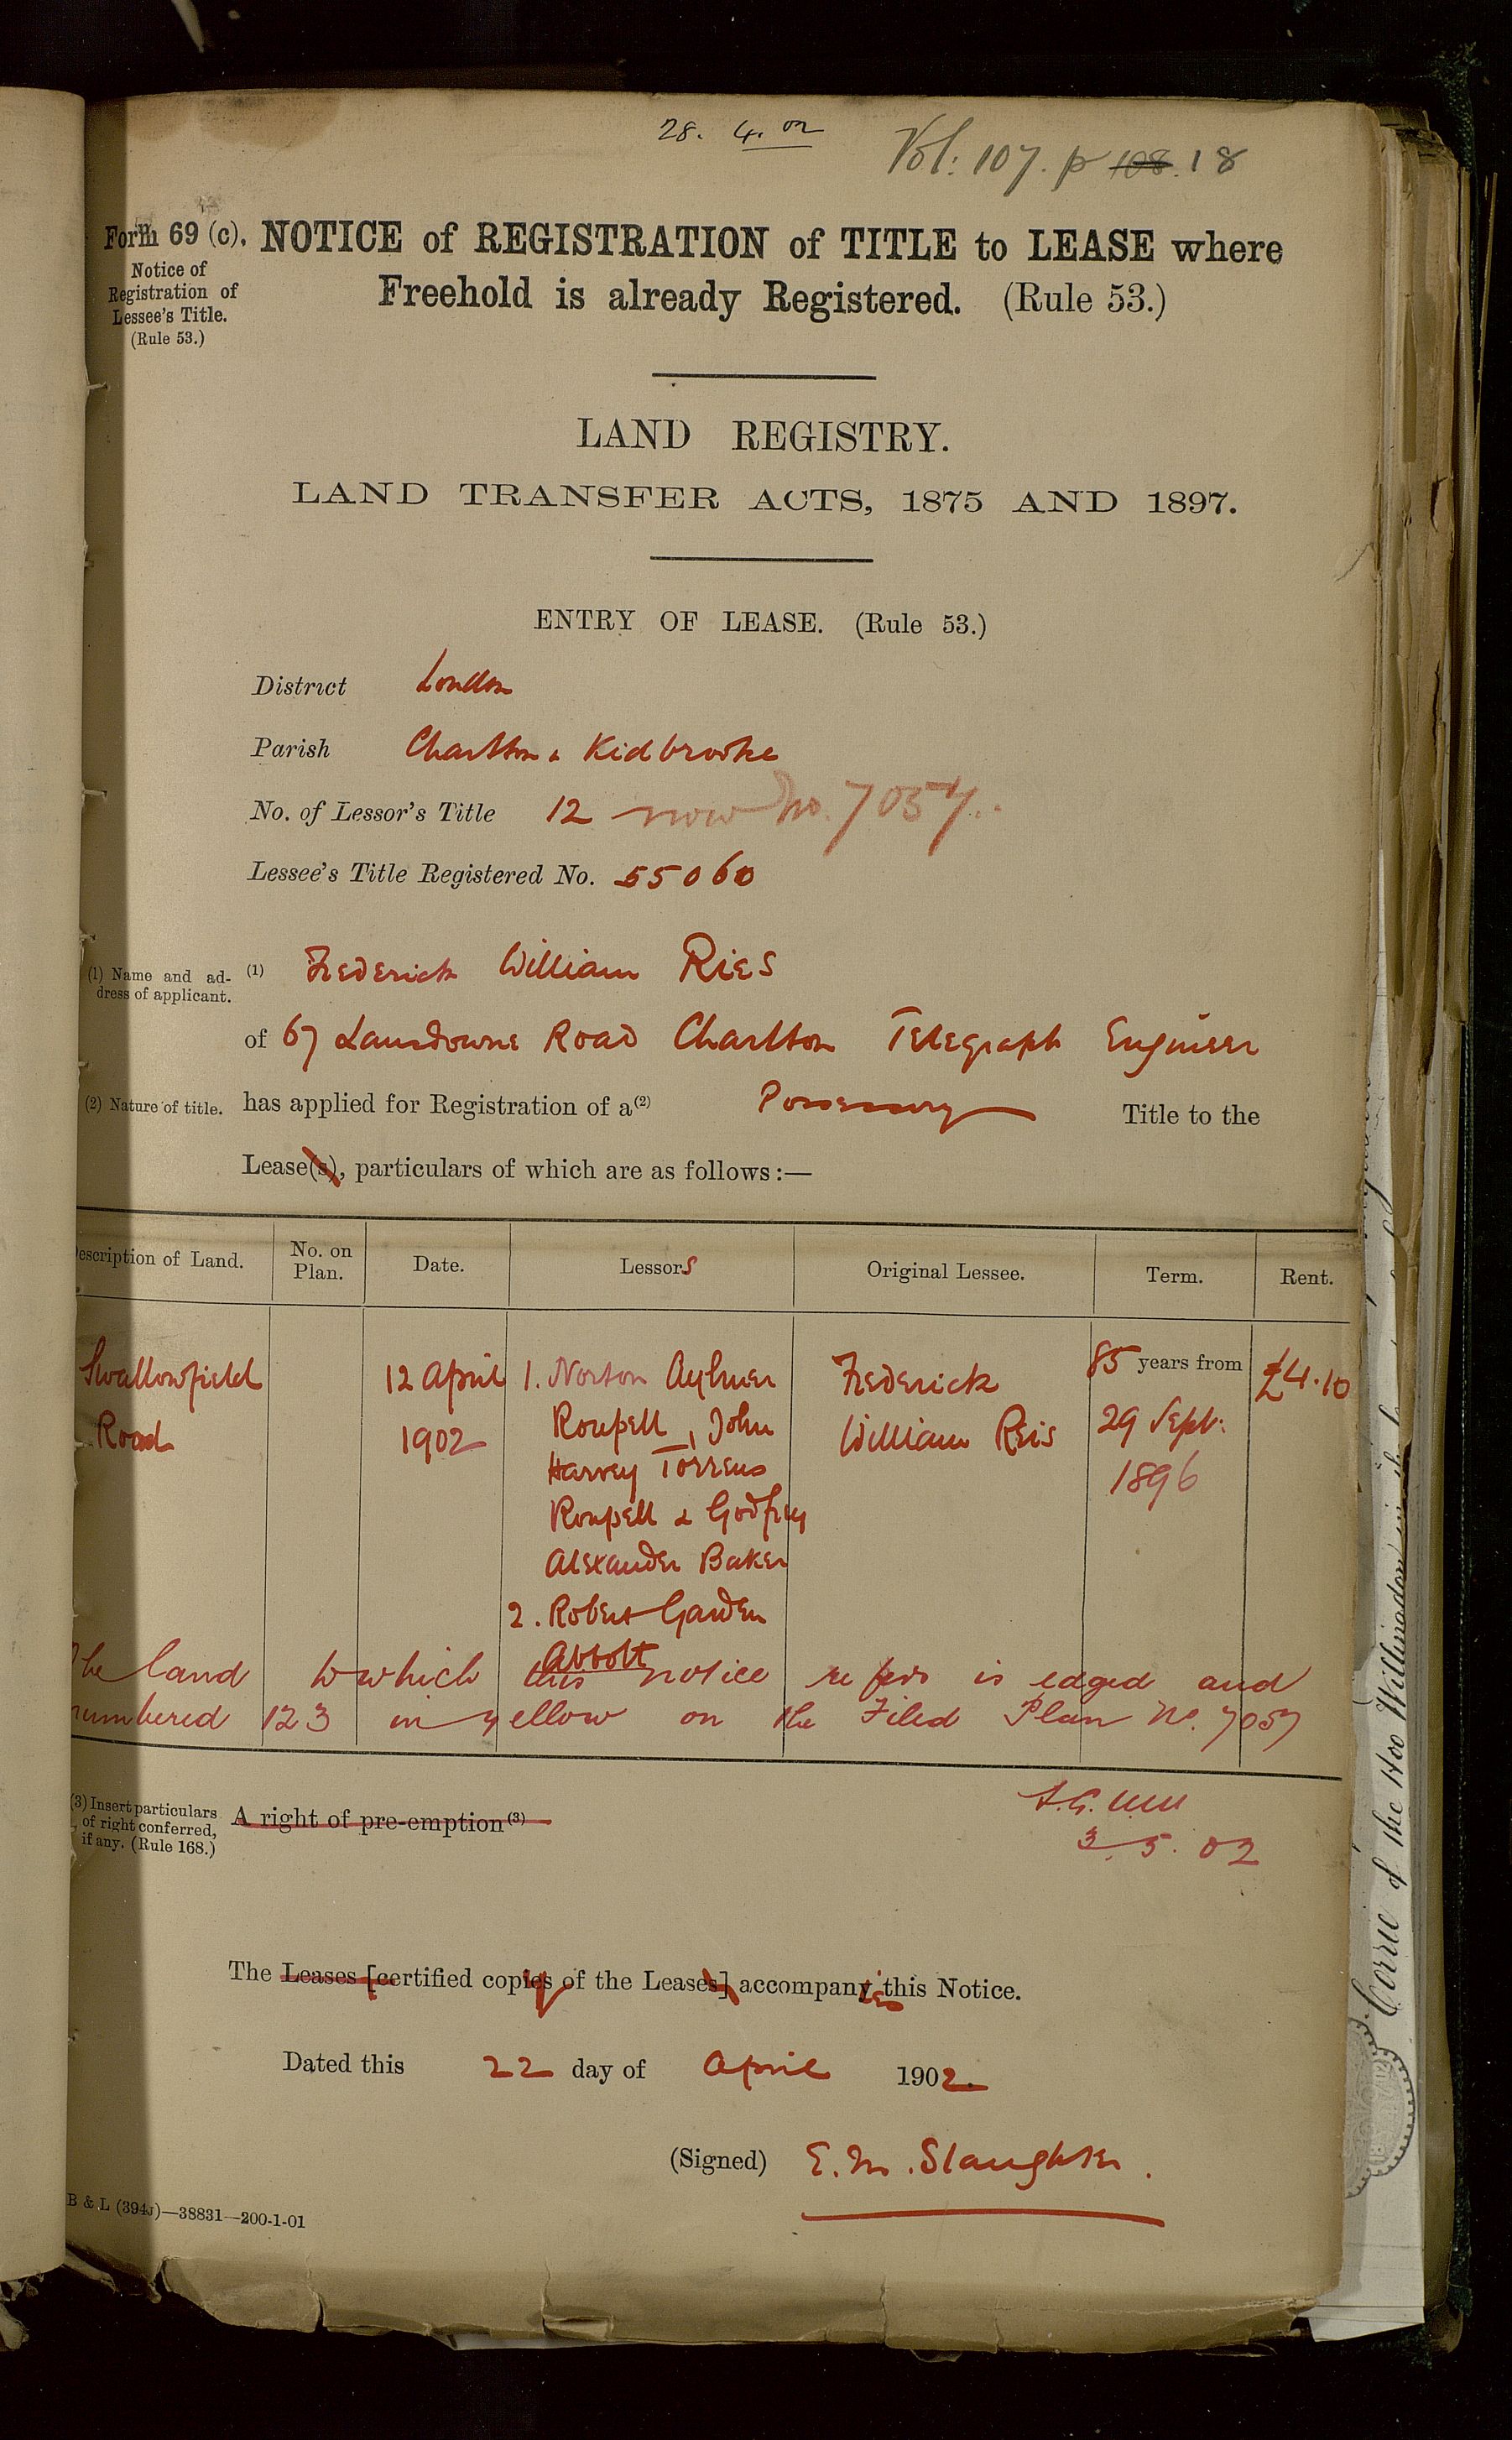 28. 4. 02
Vol: 107. p 108. 18
Form 69 (c). NOTICE of REGISTRATION of TITLE to LEASE where
Freehold is already Registered. (Rule 53.)
Notice of
Registration of
Lessee's Title.
(Rule 53.)
LAND REGISTRY.
LAND TRANSFER ACTS, 1875 AND 1897.
ENTRY OF LEASE. (Rule 53.)
District London
Parish Charlton & Kidbrooke
No. of Lessor's Title 12 now No. 7057.
Lessee's Title Registered No. 55060
(1) Name and ad-
dress of applicant.
(1) Frederick William Ries
of 67 Lansdowne Road Charlton Telegraph Engineer
(2) Nature of title. has applied for Registration of a(2) Possessory Title to the
Lease(s), particulars of which are as follows:—
escription of Land. No. on Plan. Date. Lessors Original Lessee. Term. Rent.
Swallowfield 12 April 1. Norton Aylmer Frederick 85 years from £4.10
Road 1902 Roupell, John William Reis 29 Sept:
Harvey Torrens 1896
Roupell & Godfrey
Alexander Baker
2. Robert Garden
Abbott
he land to which this notice refers is edged and
numbered 123 in yellow on the Filed Plan No. 7057
3. 5. 02
(3) Insert particulars
of right conferred,
if any. (Rule 168.)
A right of pre-emption(3)
The Leases [certified copies of the Leases] accompanies this Notice.
Dated this 22 day of April 1902.
(Signed) E. M. Slaughter.
B & L (394J)—38831—200-1-01
Corrie of the Hoo Willingdon